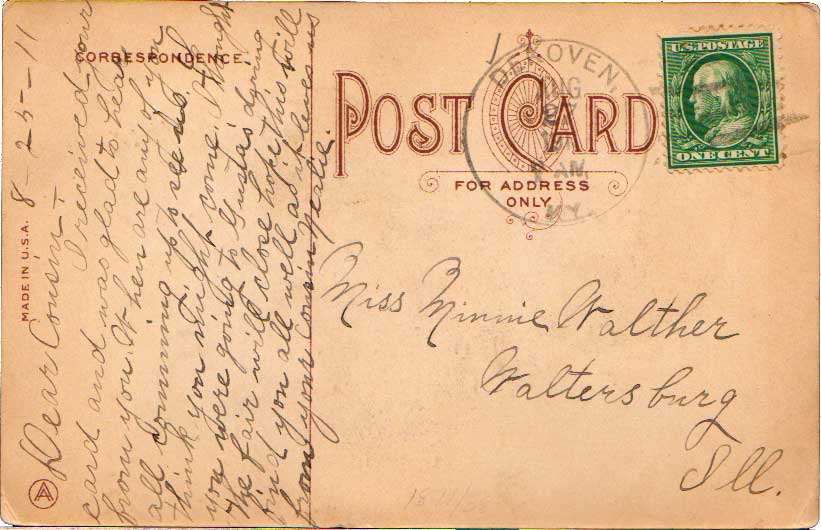 8-25-11
Dear Cousin:-
I received your
card and was glad to hear
from you. When are any of you
all comming up to see us. I
think you might come. I thought
you were going to Gusta's during
the fair will close hope this will
find you all well as it leaves us
from your Cousin
CORRESPONDENCE.
MADE IN U.S.A.
POST CARD
FOR ADDRESS
ONLY
DEKOVEN,
AUG
AM
KY.
U.S. POSTAGE
ONE CENT
Miss Minnie Walther
Waltersburg
Ill.